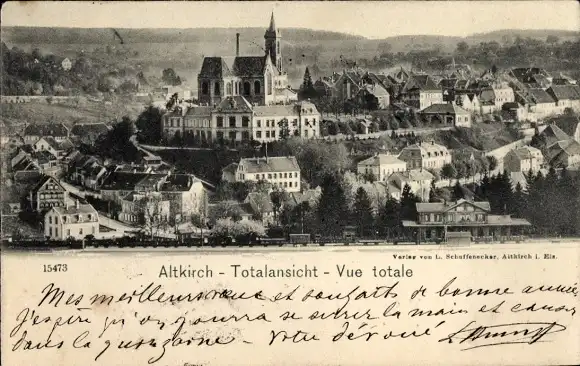 Verlag von L. Schuffenecker, Altkirch i. Els.
15473
Altkirch - Totalansicht - Vue totale
Mes meilleurs vœux et souhaits de bonne année
J'espère qu'on pourra se serrer la main et causer
dans la quinzaine - Votre dévoué